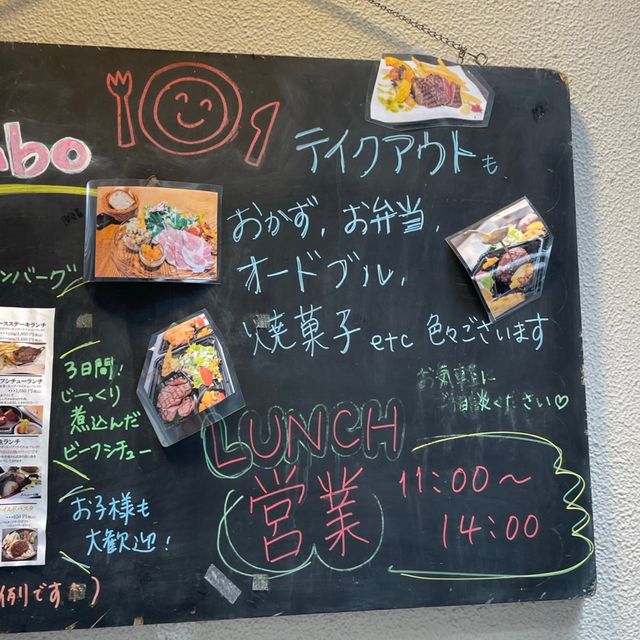 mbo
テイクアウトも
おかず、お弁当、
オードブル、
焼菓子 etc 色々ございます
お気軽に
ご相談ください♡
ンバーグ
3日間!
じっくり
煮込んだ
ビーフシチュー
お子様も
大歓迎!
LUNCH
営業
11:00〜
14:00
ースステーキランチ
フシチューランチ
ランチ
イルドパスタ
例です)